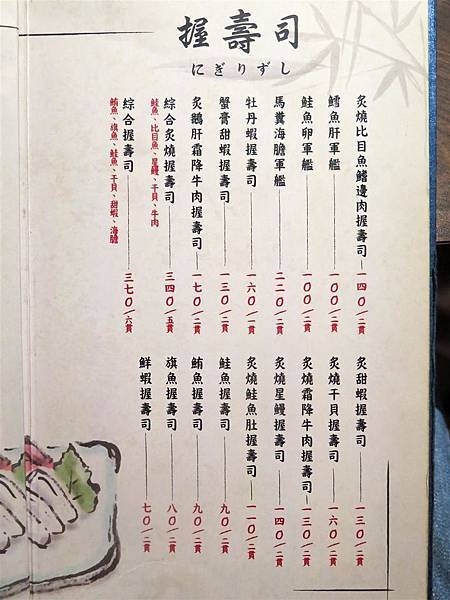 握壽司
にぎりずし
炙燒比目魚鰭邊肉握壽司 一四0/二貫
鱈魚肝軍艦 一00/二貫
鮭魚卵軍艦 一00/二貫
馬糞海膽軍艦 二二0/二貫
牡丹蝦握壽司 一六0/二貫
蟹膏甜蝦握壽司 一三0/二貫
炙鵝肝霜降牛肉握壽司 一七0/二貫
綜合炙燒握壽司 三四0/五貫
鮭魚、比目魚、星鰻、干貝、牛肉
綜合握壽司 三七0/六貫
鮪魚、旗魚、鮭魚、干貝、甜蝦、海膽
炙甜蝦握壽司 一三0/二貫
炙燒干貝握壽司 一六0/二貫
炙燒霜降牛肉握壽司 一三0/二貫
炙燒星鰻握壽司 一四0/二貫
炙燒鮭魚肚握壽司 一一0/二貫
鮭魚握壽司 九0/二貫
鮪魚握壽司 九0/二貫
旗魚握壽司 八0/二貫
鮮蝦握壽司 七0/二貫